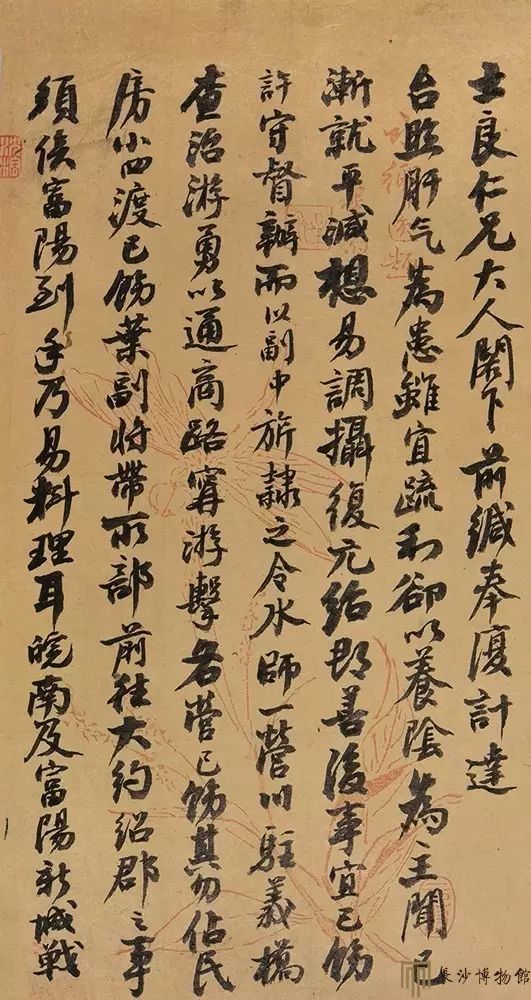 士良仁兄大人閣下前緘奉復計達
台照肝气為患雖宜疏利卻以養陰為主聞已
漸就平減想易調攝復元紹郡善後事宜已飭
許守督辦而以副中旂隸之令水師一營駐義橋
查治游勇以通商路甯游擊各營已飭其勿佔民
房小渡已飭葉副将帶所部前往大約紹郡之事
須俟富陽到手乃易料理耳皖南及富陽新城戰
長沙博物館